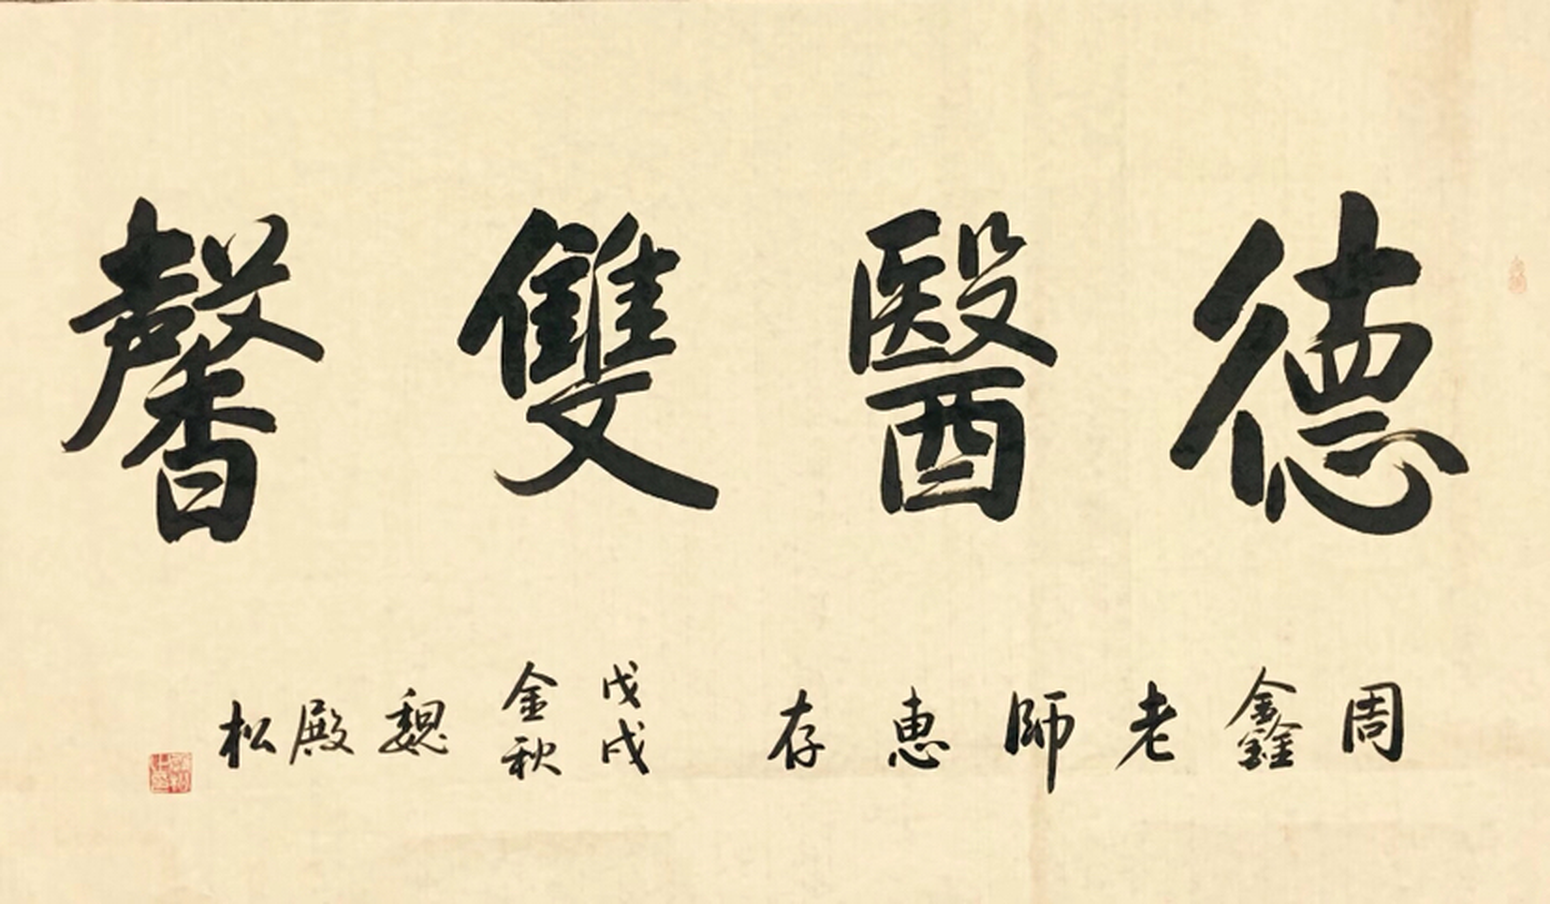 德醫雙馨
周鑫老師惠存
戊戌金秋
魏殿松